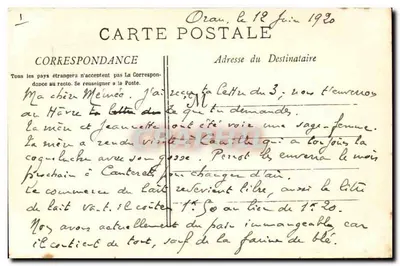 1
Oran, le 12 Juin 1920
CARTE POSTALE
CORRESPONDANCE
Adresse du Destinataire
Tous les pays étrangers n'acceptent pas la Correspon-
dance au recto. Se renseigner à la Poste.
Ma chère Mémée. J'ai reçu ta lettre du 3; vous t'enverrons
au Hâvre ce que tu demandes.
La mère et Jeannette ont été voir une sage-femme.
La mère a rendu visite à Camille qui a toujours la
coqueluche avec son gosse. Perrot les enverra le mois
prochain à Cauterets pour changer d'air.
Le commerce du lait redevient libre, aussi le litre
de lait va-t-il coûter 1.50 au lieu de 1.20.
Nous avons actuellement du pain immangeable car
il contient de tout, sauf de la farine de blé.